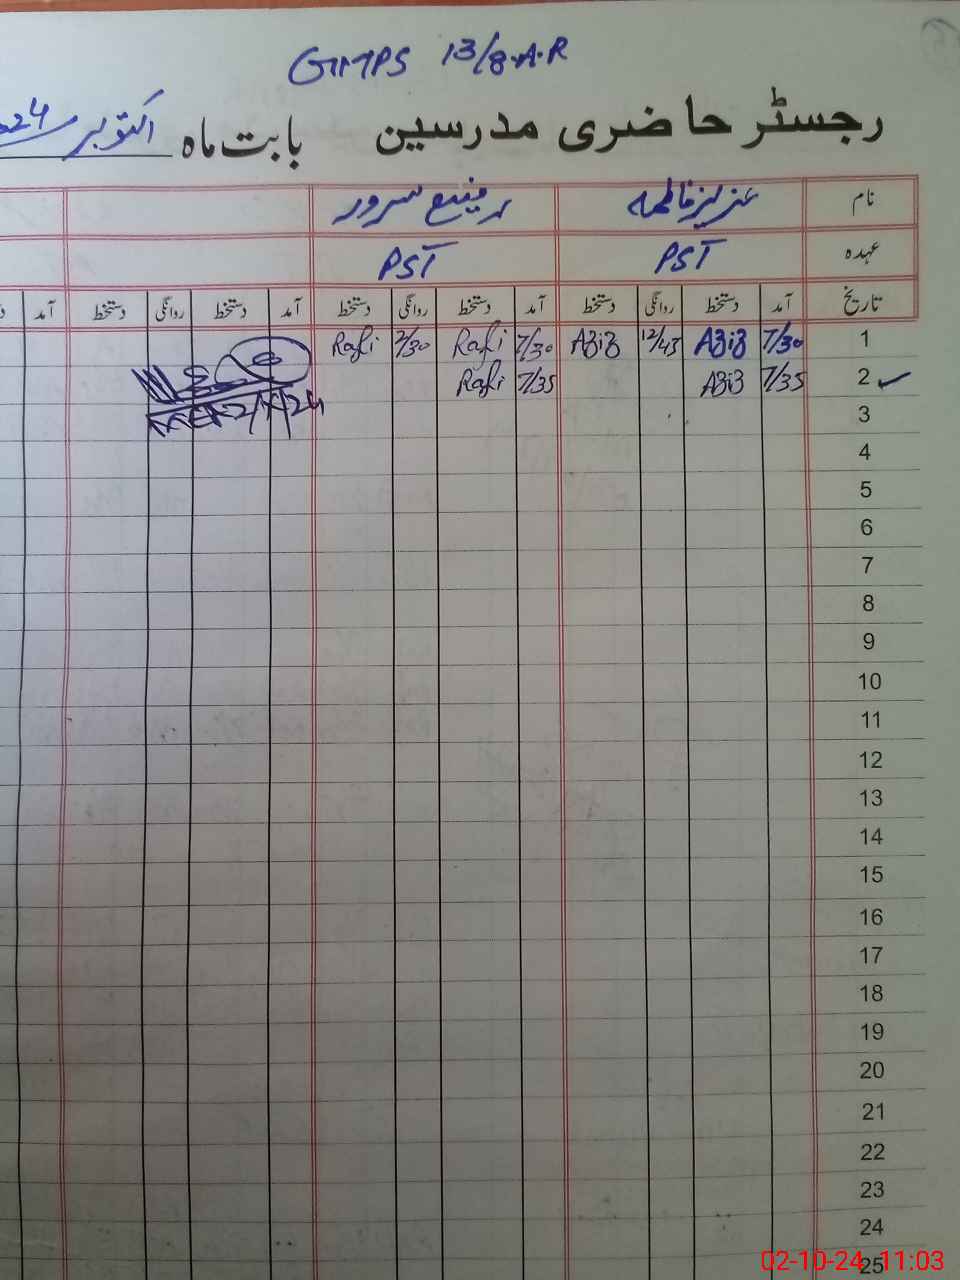 GMPS 13/8.A.R
رجسٹر حاضری مدرسین بابت ماہ اکتوبر 24
نام عزیز فاطمہ رفیع سرور
عہدہ PST PST
تاریخ آمد دستخط روانگی دستخط آمد دستخط روانگی دستخط آمد دستخط روانگی دستخط آمد
1 7/30 Aziz 12/45 Aziz 7/30 Rafi 2/30 Rafi
2 7/35 Aziz 7/35 Rafi
3
4
5
6
7
8
9
10
11
12
13
14
15
16
17
18
19
20
21
22
23
24
25
02-10-24 11:03